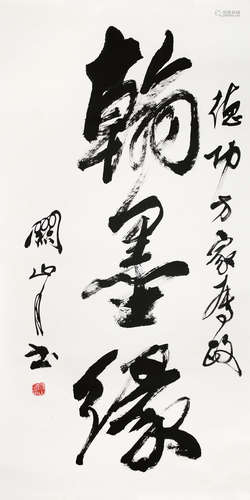 德功方家属政
翰墨缘
關山月书